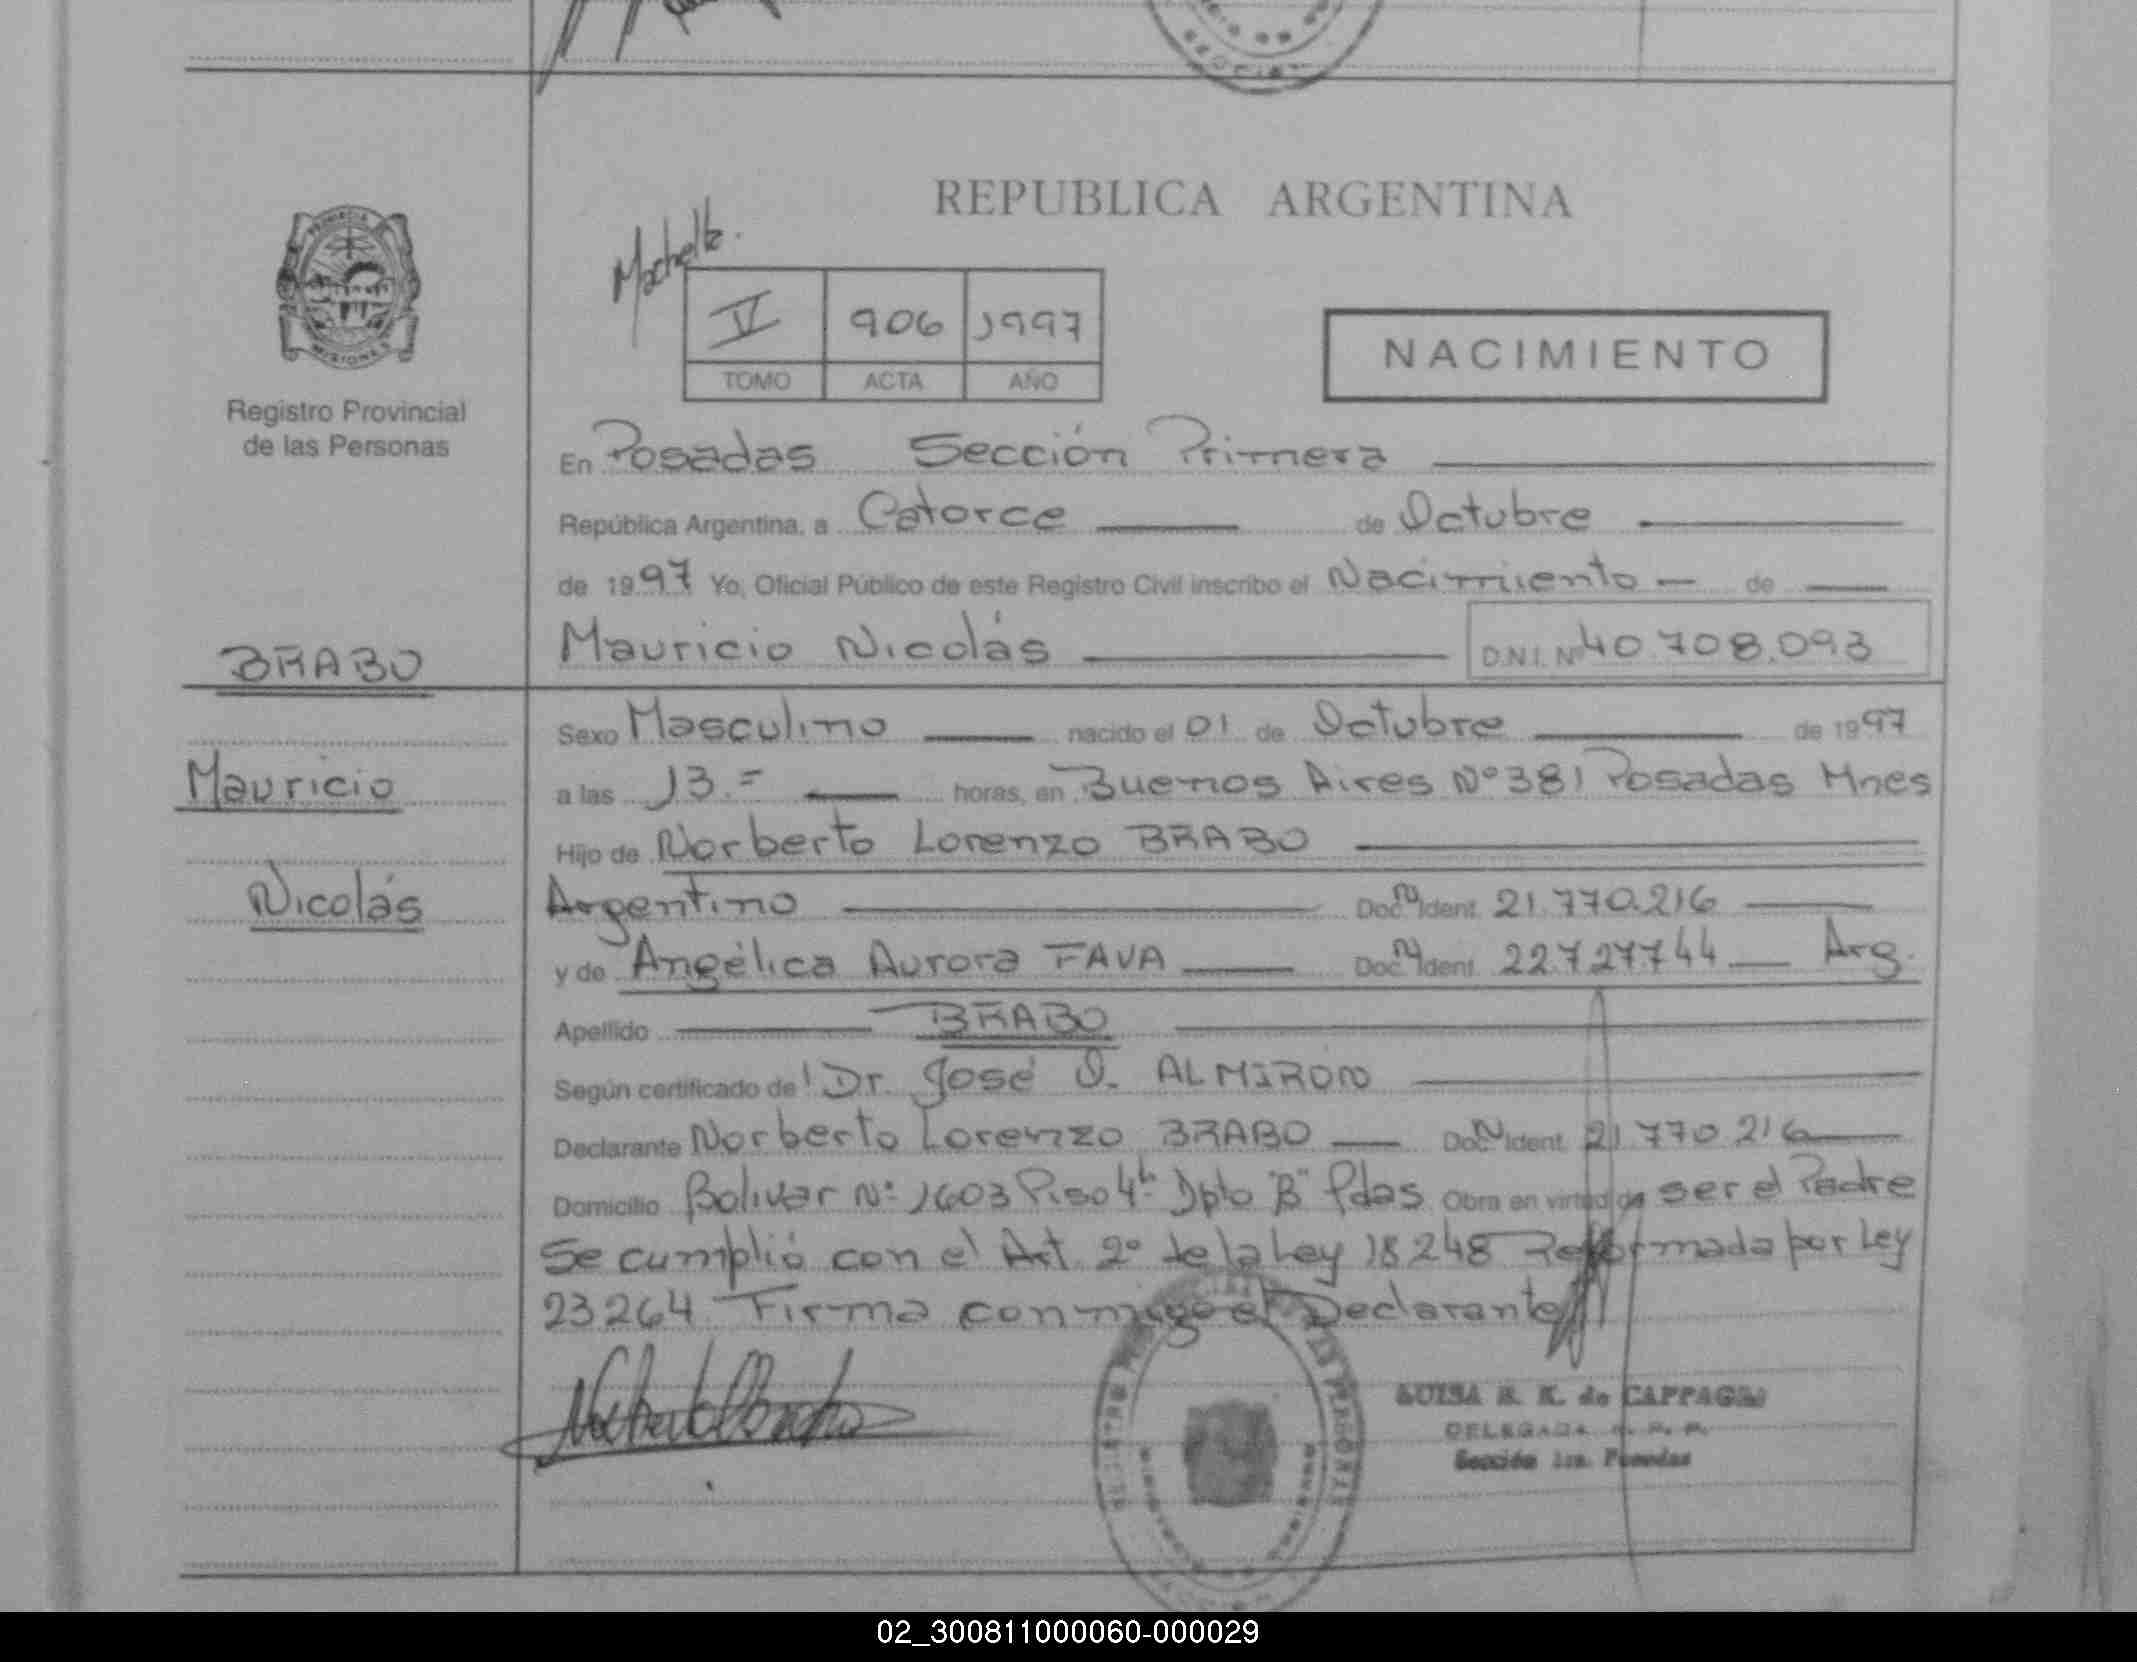 REPUBLICA ARGENTINA
V 906 1997
TOMO ACTA AÑO
NACIMIENTO
MISIONES
Registro Provincial
de las Personas
En Posadas Sección Primera
República Argentina, a Catorce de Octubre
de 1997 Yo, Oficial Público de este Registro Civil inscribo el Nacimiento de
Mauricio Nicolás D.N.I. Nº 40.708.093
BRABO
Mauricio
Nicolás
Sexo Masculino nacido el 01 de Octubre de 1997
a las 13.= horas, en Buenos Aires Nº 381 Posadas Mnes
Hijo de Norberto Lorenzo BRABO
Argentino Doc. N Ident. 21.770.216
y de Angélica Aurora FAVA Doc. N Ident. 22.727.744 Arg.
Apellido BRABO
Según certificado de Dr. José O. ALMIRON
Declarante Norberto Lorenzo BRABO Doc. N Ident. 21.770.216
Domicilio Bolivar Nº 1603 Piso 4º Dpto "B" Pdas. Obra en virtud de ser el Padre
Se cumplió con el Art. 2º de la Ley 18248 Reformada por Ley
23264. Firma conmigo el Declarante
LUISA R. K. de CAPPAGLI
DELEGADA R. P. P.
Sección 1ra. Posadas
02_300811000060-000029